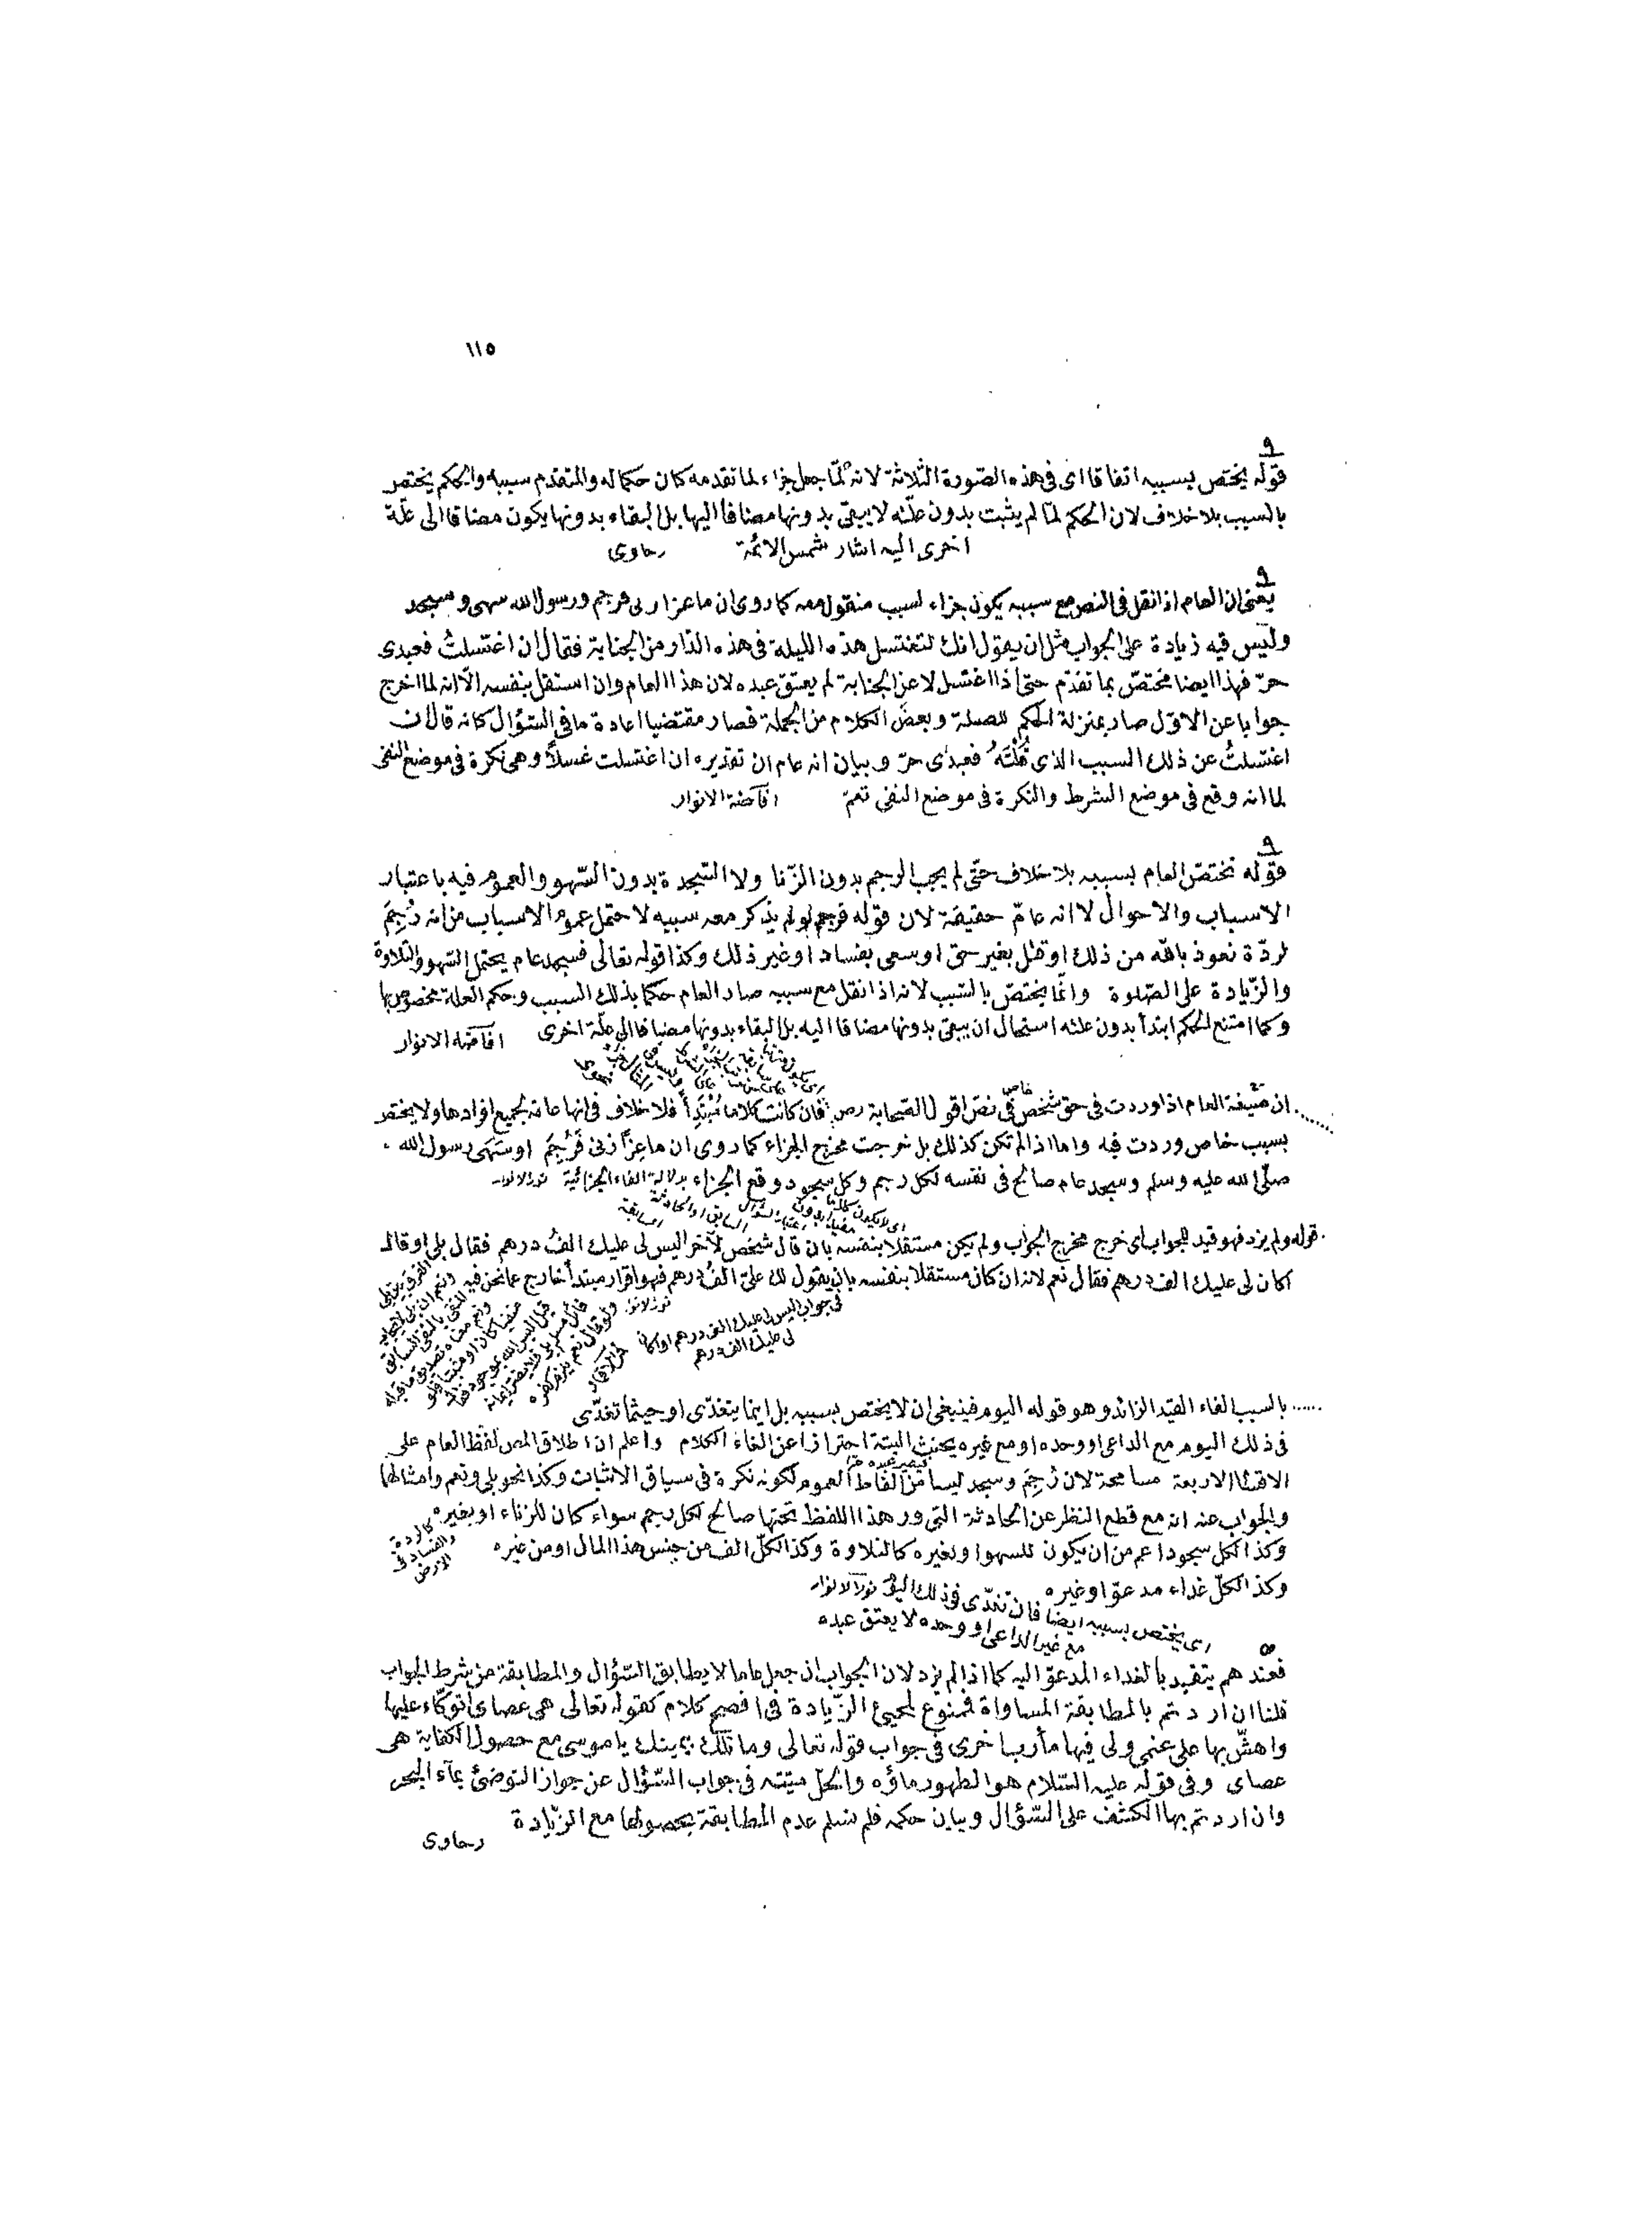 ١١٥
٩
قوله يختص بسببه اتفاقا اى فى هذه الصّورة الثّلاثة لانه لمّا جعل جزاء لما تقدمه كان حكما له والمتقدم سببه والحكم يختص
بالسبب بلا خلاف لان الحكم لمّا لم يثبت بدون علّته لا يبقى بدونها مضافا اليها بل البقاء بدونها يكون مضافا الى علّة
اخرى اليه اشار شمس الائمّة رهاوى
٩
يعنى ان العام اذا نقل فى النص مع سببه يكون جزاء لسبب منقول معه كما روى ان ماعزا زنى فرجم ورسول الله سهى وسجد
وليس فيه زيادة على الجواب مثل ان يقول انك لتغتسل هذه الليلة فى هذه الدّار من الجنابة فقال ان اغتسلتُ فعبدى
حرّ فهذا ايضا مختصّ بما تقدّم حتى اذا اغتسل لا عن الجنابة لم يعتق عبده لان هذا العام وان استقل بنفسه الّا انه لما اخرج
جوابا عن الاوّل صار بمنزلة الحكم للعلة وبعض الكلام من الجملة فصار مقتضيا اعادة ما فى السّؤال كانه قال ان
اغتسلتُ عن ذلك السبب الذى قُلْتَهُ فعبدى حرّ وبيان انه عام ان تقديره ان اغتسلت غسلاً وهى نكرة فى موضع النفى
لما انه وقع فى موضع الشرط والنكرة فى موضع النفى تعمّ افاضة الانوار
٩
قوله تختصّ العام بسببه بلا خلاف حتّى لم يجب الرجم بدون الزّنا ولا السّجدة بدون السّهو والعموم فيه باعتبار
الاسباب والاحوال لا انه عامّ حقيقة لان قوله فرجم لو لم يذكر معه سببه لاحتمل عموم الاسباب من انه رُجِمَ
لردّة نعوذ بالله من ذلك او قتل بغير حق او سعى بفساد او غير ذلك وكذا قوله تعالى فسجد عام يحتمل السّهو والتلاوة
والزّيادة على الصّلوة وانّما يختصّ بالسّبب لانه اذا نقل مع سببه صار العام حكما بذلك السبب وحكم العلة مخصوص بها
وكما امتنع الحكم ابتدأ بدون علته استحال ان يبقى بدونها مضافا اليه بل البقاء بدونها مضافا الى علّة اخرى افاضة الانوار
ان صيغة العام اذا وردت فى حق شخص خاص فى نص او قول الصّحابة رض فان كانت كلاما مُبْتَدأً فلا خلاف فى انها عامة لجميع افرادها ولا يختص
بسبب خاص وردت فيه واما اذا لم تكن كذلك بل خرجت مخرج الجزاء كما روى ان ماعِزاً زنى فَرُجِمَ او سَهَى رسول الله
صلّى الله عليه وسلم وسجد عام صالح فى نفسه لكل رجم وكل سجود وقع الجزاء بدلالة الفاء الجزائية نور الانوار
قوله ولم يزد فهو قيد للجواب اى خرج مخرج الجواب ولم يكن مستقلا بنفسه بان قال شخص لآخر اليس لى عليك الفُ درهم فقال بلى او قال
اكان لى عليك الف درهم فقال نعم لانه ان كان مستقلا بنفسه بان يقول لك علىّ الفُ درهم فهو اقرار مبتدأ خارج عما نحن فيه
نور الانوار
فى جواب اليس لى عليك الف درهم او اكان
لى عليك الف درهم
بالسبب الغاء القيد الزائد وهو قوله اليوم فينبغى ان لا يختص بسببه بل اينما يتغدّى او حيثما تغدّى
فى ذلك اليوم مع الداعى او وحده او مع غيره يحنث البتة احترازا عن الغاء الكلام واعلم ان اطلاق المص لفظ العام على
الاقسام الاربعة مسامحة لان رُجِمَ وسجد ليسا من الفاظ العموم لكونه نكرة فى سياق الاثبات وكذا نحو بلى ونعم وامثالهما
والجواب عنه انه مع قطع النظر عن الحادثة التى ورد هذا اللفظ تحتها صالح لكل رجم سواء كان للزناء او بغيره
كالردة
والفساد فى
الارض
وكذا لكل سجود اعم من ان يكون للسهو او بغيره كالتلاوة وكذا لكلّ الف من جنس هذا المال او من غيره
وكذا لكلّ غداء مدعوّ او غيره فان تغدّى فى ذلك اليوم نور الانوار
اى يختص بسببه ايضا
مع غير الداعى او وحده لا يعتق عبده
فعندهم يتقيد بالغداء المدعوّ اليه كما اذا لم يزد لان الجواب ان جعل عاما لا يطابق السّؤال والمطابقة من شرط الجواب
قلنا ان اردتم بالمطابقة المساواة فممنوع لمجيئ الزّيادة فى افصح كلام كقوله تعالى هى عصاى أتوكّاء عليها
واهشّ بها على غنمى ولى فيها مأرب اخرى فى جواب قوله تعالى وما تلك بيمينك يا موسى مع حصول الكفاية هى
عصاى وفى قوله عليه السّلام هو الطهور ماؤه والحلّ ميتته فى جواب السّؤال عن جواز التوضئ بمآء البحر
وان اردتم بها الكشف على السّؤال وبيان حكمه فلم نسلم عدم المطابقة بحصولها مع الزّيادة
رهاوى